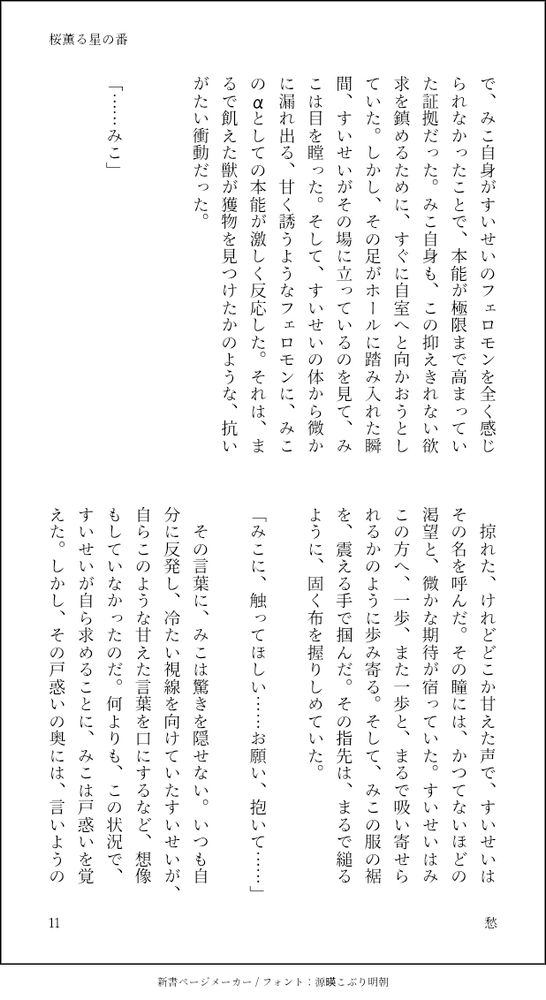 桜薫る星の番
で、みこ自身がすいせいのフェロモンを全く感じ
られなかったことで、本能が極限まで高まってい
た証拠だった。みこ自身も、この抑えきれない欲
求を鎮めるために、すぐに自室へと向かおうとし
ていた。しかし、その足がホールに踏み入れた瞬
間、すいせいがその場に立っているのを見て、み
こは目を瞠った。そして、すいせいの体から微か
に漏れ出る、甘く誘うようなフェロモンに、みこ
のαとしての本能が激しく反応した。それは、ま
るで飢えた獣が獲物を見つけたかのような、抗い
がたい衝動だった。
「……みこ」
掠れた、けれどどこか甘えた声で、すいせいは
その名を呼んだ。その瞳には、かつてないほどの
渇望と、微かな期待が宿っていた。すいせいはみ
この方へ、一歩、また一歩と、まるで吸い寄せら
れるかのように歩み寄る。そして、みこの服の裾
を、震える手で掴んだ。その指先は、まるで縋る
ように、固く布を握りしめていた。
「みこに、触ってほしい……お願い、抱いて……」
その言葉に、みこは驚きを隠せない。いつも自
分に反発し、冷たい視線を向けていたすいせいが、
自らこのような甘えた言葉を口にするなど、想像
もしていなかったのだ。何よりも、この状況で、
すいせいが自ら求めることに、みこは戸惑いを覚
えた。しかし、その戸惑いの奥には、言いようの
11
愁
新書ページメーカー / フォント：源暎こぶり明朝